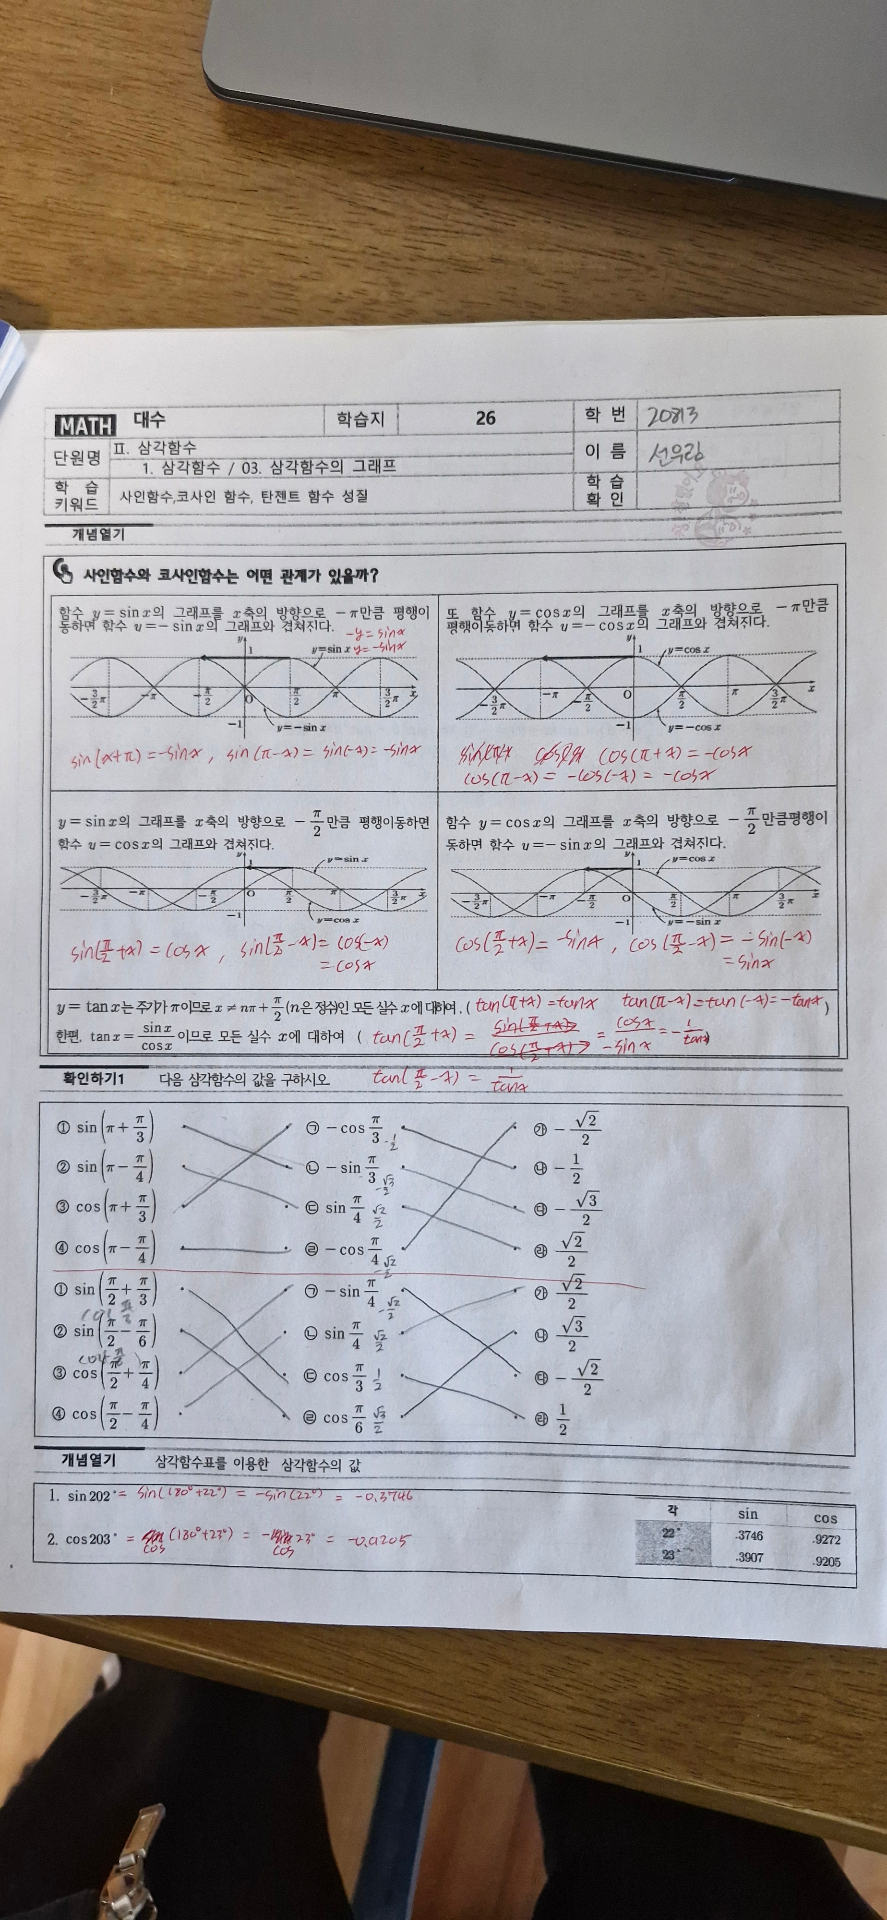 MATH 대수 학습지 26 학 번 20813
단원명 Ⅱ. 삼각함수 이 름 선우림
1. 삼각함수 / 03. 삼각함수의 그래프
학 습 키워드 사인함수,코사인 함수, 탄젠트 함수 성질 학 습 확 인
개념열기
사인함수와 코사인함수는 어떤 관계가 있을까?
함수 y=sin x의 그래프를 x축의 방향으로 -π만큼 평행이
동하면 함수 y=-sin x의 그래프와 겹쳐진다.
-y=sinx
y=sin x y=-sinx
y 1 -3/2π -π -π/2 O π/2 π 3/2π x
-1 y=-sin x
sin(x+π)=-sinx, sin(π-x)=sin(-x)=-sinx
또 함수 y=cos x의 그래프를 x축의 방향으로 -π만큼
평행이동하면 함수 y=-cos x의 그래프와 겹쳐진다.
y 1 y=cos x
-3/2π -π -π/2 O π/2 π 3/2π x
-1 y=-cos x
cos(π+x)=-cosx
cos(π-x)=-cos(-x)=-cosx
y=sin x의 그래프를 x축의 방향으로 -π/2만큼 평행이동하면
함수 y=cos x의 그래프와 겹쳐진다.
y 1 y=sin x
-3/2π -π -π/2 O π/2 π 3/2π x
-1 y=cos x
sin(π/2+x)=cosx, sin(π/2-x)=cos(-x)
=cosx
함수 y=cos x의 그래프를 x축의 방향으로 -π/2만큼평행이
동하면 함수 y=-sin x의 그래프와 겹쳐진다.
y 1 y=cos x
-3/2π -π -π/2 O π/2 π 3/2π x
-1 y=-sin x
cos(π/2+x)=-sinx, cos(π/2-x)=-sin(-x)
=sinx
y=tan x는 주기가 π이므로 x≠nπ+π/2 (n은 정수)인 모든 실수 x에 대하여, ( tan(π+x)=tanx tan(π-x)=tan(-x)=-tanx )
한편, tan x=sin x/cos x 이므로 모든 실수 x에 대하여 ( tan(π/2+x)=sin(π/2+x)/cos(π/2+x)=cosx/-sinx=-1/tanx )
tan(π/2-x)=1/tanx
확인하기1 다음 삼각함수의 값을 구하시오
① sin(π+π/3) ㉠ -cos π/3 -1/2 ㉮ -√2/2
② sin(π-π/4) ㉡ -sin π/3 -√3/2 ㉯ -1/2
③ cos(π+π/3) ㉢ sin π/4 √2/2 ㉰ -√3/2
④ cos(π-π/4) ㉣ -cos π/4 -√2/2 ㉱ √2/2
① sin(π/2+π/3) ㉠ -sin π/4 -√2/2 ㉮ √2/2
cos π/3
② sin(π/2-π/6) ㉡ sin π/4 √2/2 ㉯ √3/2
cos π/6
③ cos(π/2+π/4) ㉢ cos π/3 1/2 ㉰ -√2/2
④ cos(π/2-π/4) ㉣ cos π/6 √3/2 ㉱ 1/2
개념열기 삼각함수표를 이용한 삼각함수의 값
1. sin202°= sin(180°+22°) = -sin(22°) = -0.3746
2. cos203° = cos(180°+23°) = -cos23° = -0.9205
각 sin cos
22° .3746 .9272
23° .3907 .9205